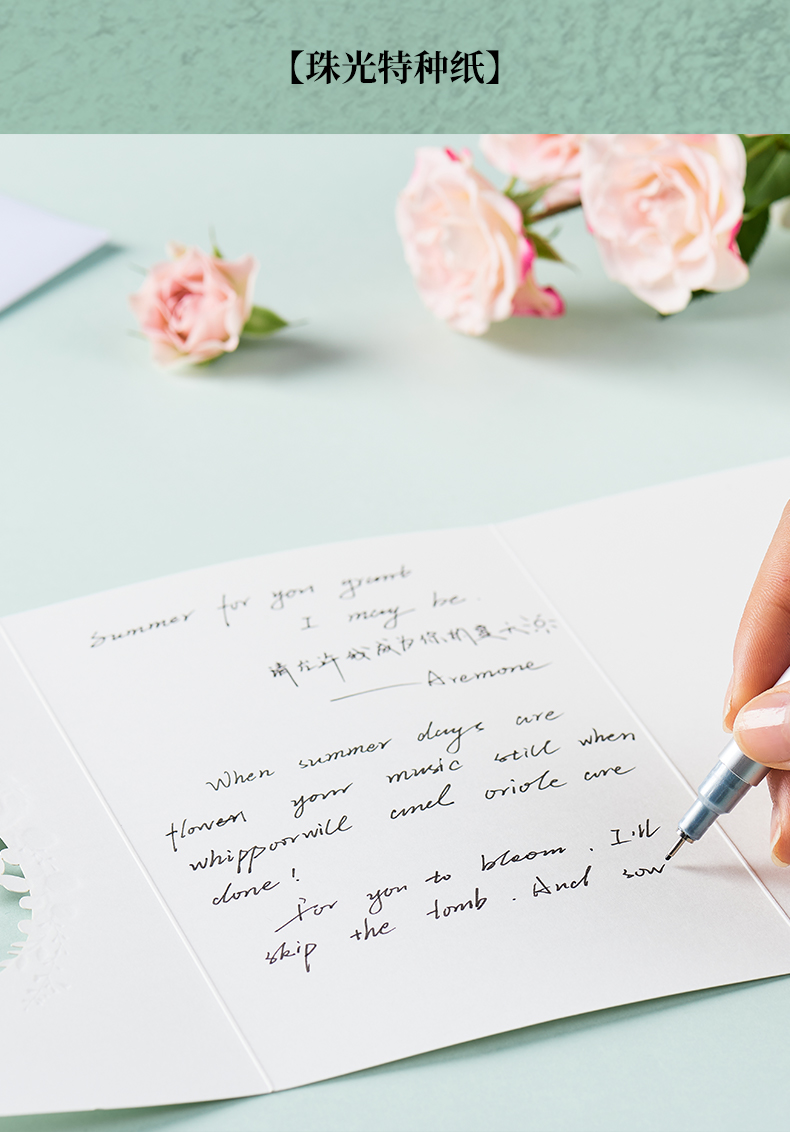 【珠光特种纸】
summer for you grumb
I may be.
请允许我成为你的夏天
—— Aremone
When summer days are
flowen your music still when
whippoorwill and oriole are
done!
For you to bloom. I'll
skip the tomb. And sow